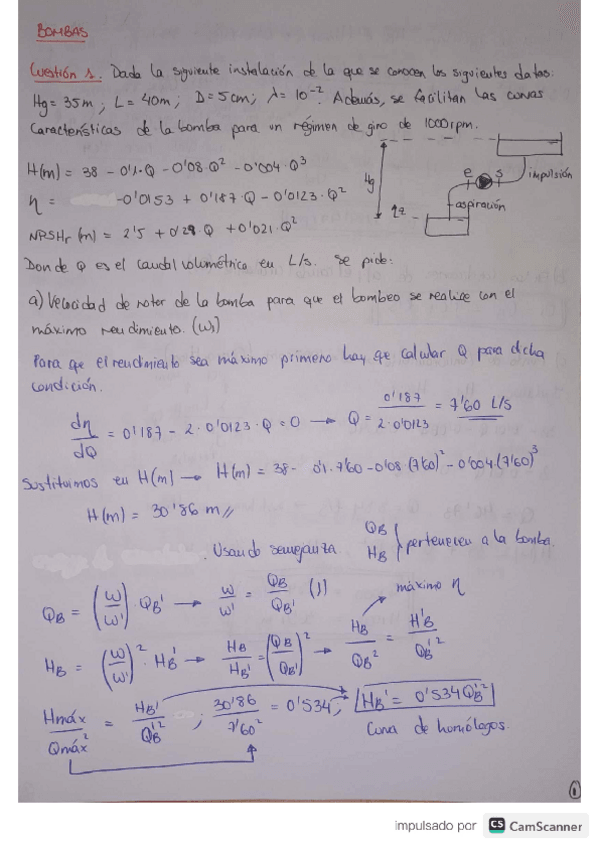 BOMBAS
Cuestión 1. Dada la siguiente instalación de la que se conocen los siguientes datos:
Hg = 35m ; L = 40m ; D = 5cm ; λ = 10⁻². Además, se facilitan las curvas
características de la bomba para un régimen de giro de 1000rpm.
H(m) = 38 - 0'1·Q - 0'08·Q² - 0'004·Q³
η = -0'0153 + 0'187·Q - 0'0123·Q²
NPSHr (m) = 2'5 + 0'29·Q + 0'021·Q²
Hg
e
s
impulsión
aspiración
Donde Q es el caudal volumétrico en L/s. Se pide:
a) Velocidad de rotor de la bomba para que el bombeo se realice con el
máximo rendimiento. (ω)
Para que el rendimiento sea máximo primero hay que calcular Q para dicha
condición.
dη/dQ = 0'187 - 2·0'0123·Q = 0 → Q = 0'187/2·0'0123 = 7'60 L/s
Sustituimos en H(m) → H(m) = 38 - 0'1·7'60 - 0'08·(7'60)² - 0'004·(7'60)³
H(m) = 30'86 m //
Usando semejanza
QB
HB
pertenecen a la bomba.
QB = (ω/ω')·QB' → ω/ω' = QB/QB' (1)
máximo η
HB = (ω/ω')²·HB' → HB/HB' = (QB/QB')² → HB/QB² = H'B/QB'²
Hmáx/Qmáx² = HB'/QB'² ; 30'86/7'60² = 0'534 ; HB' = 0'534QB'²
Curva de homólogos.
1
impulsado por CS CamScanner